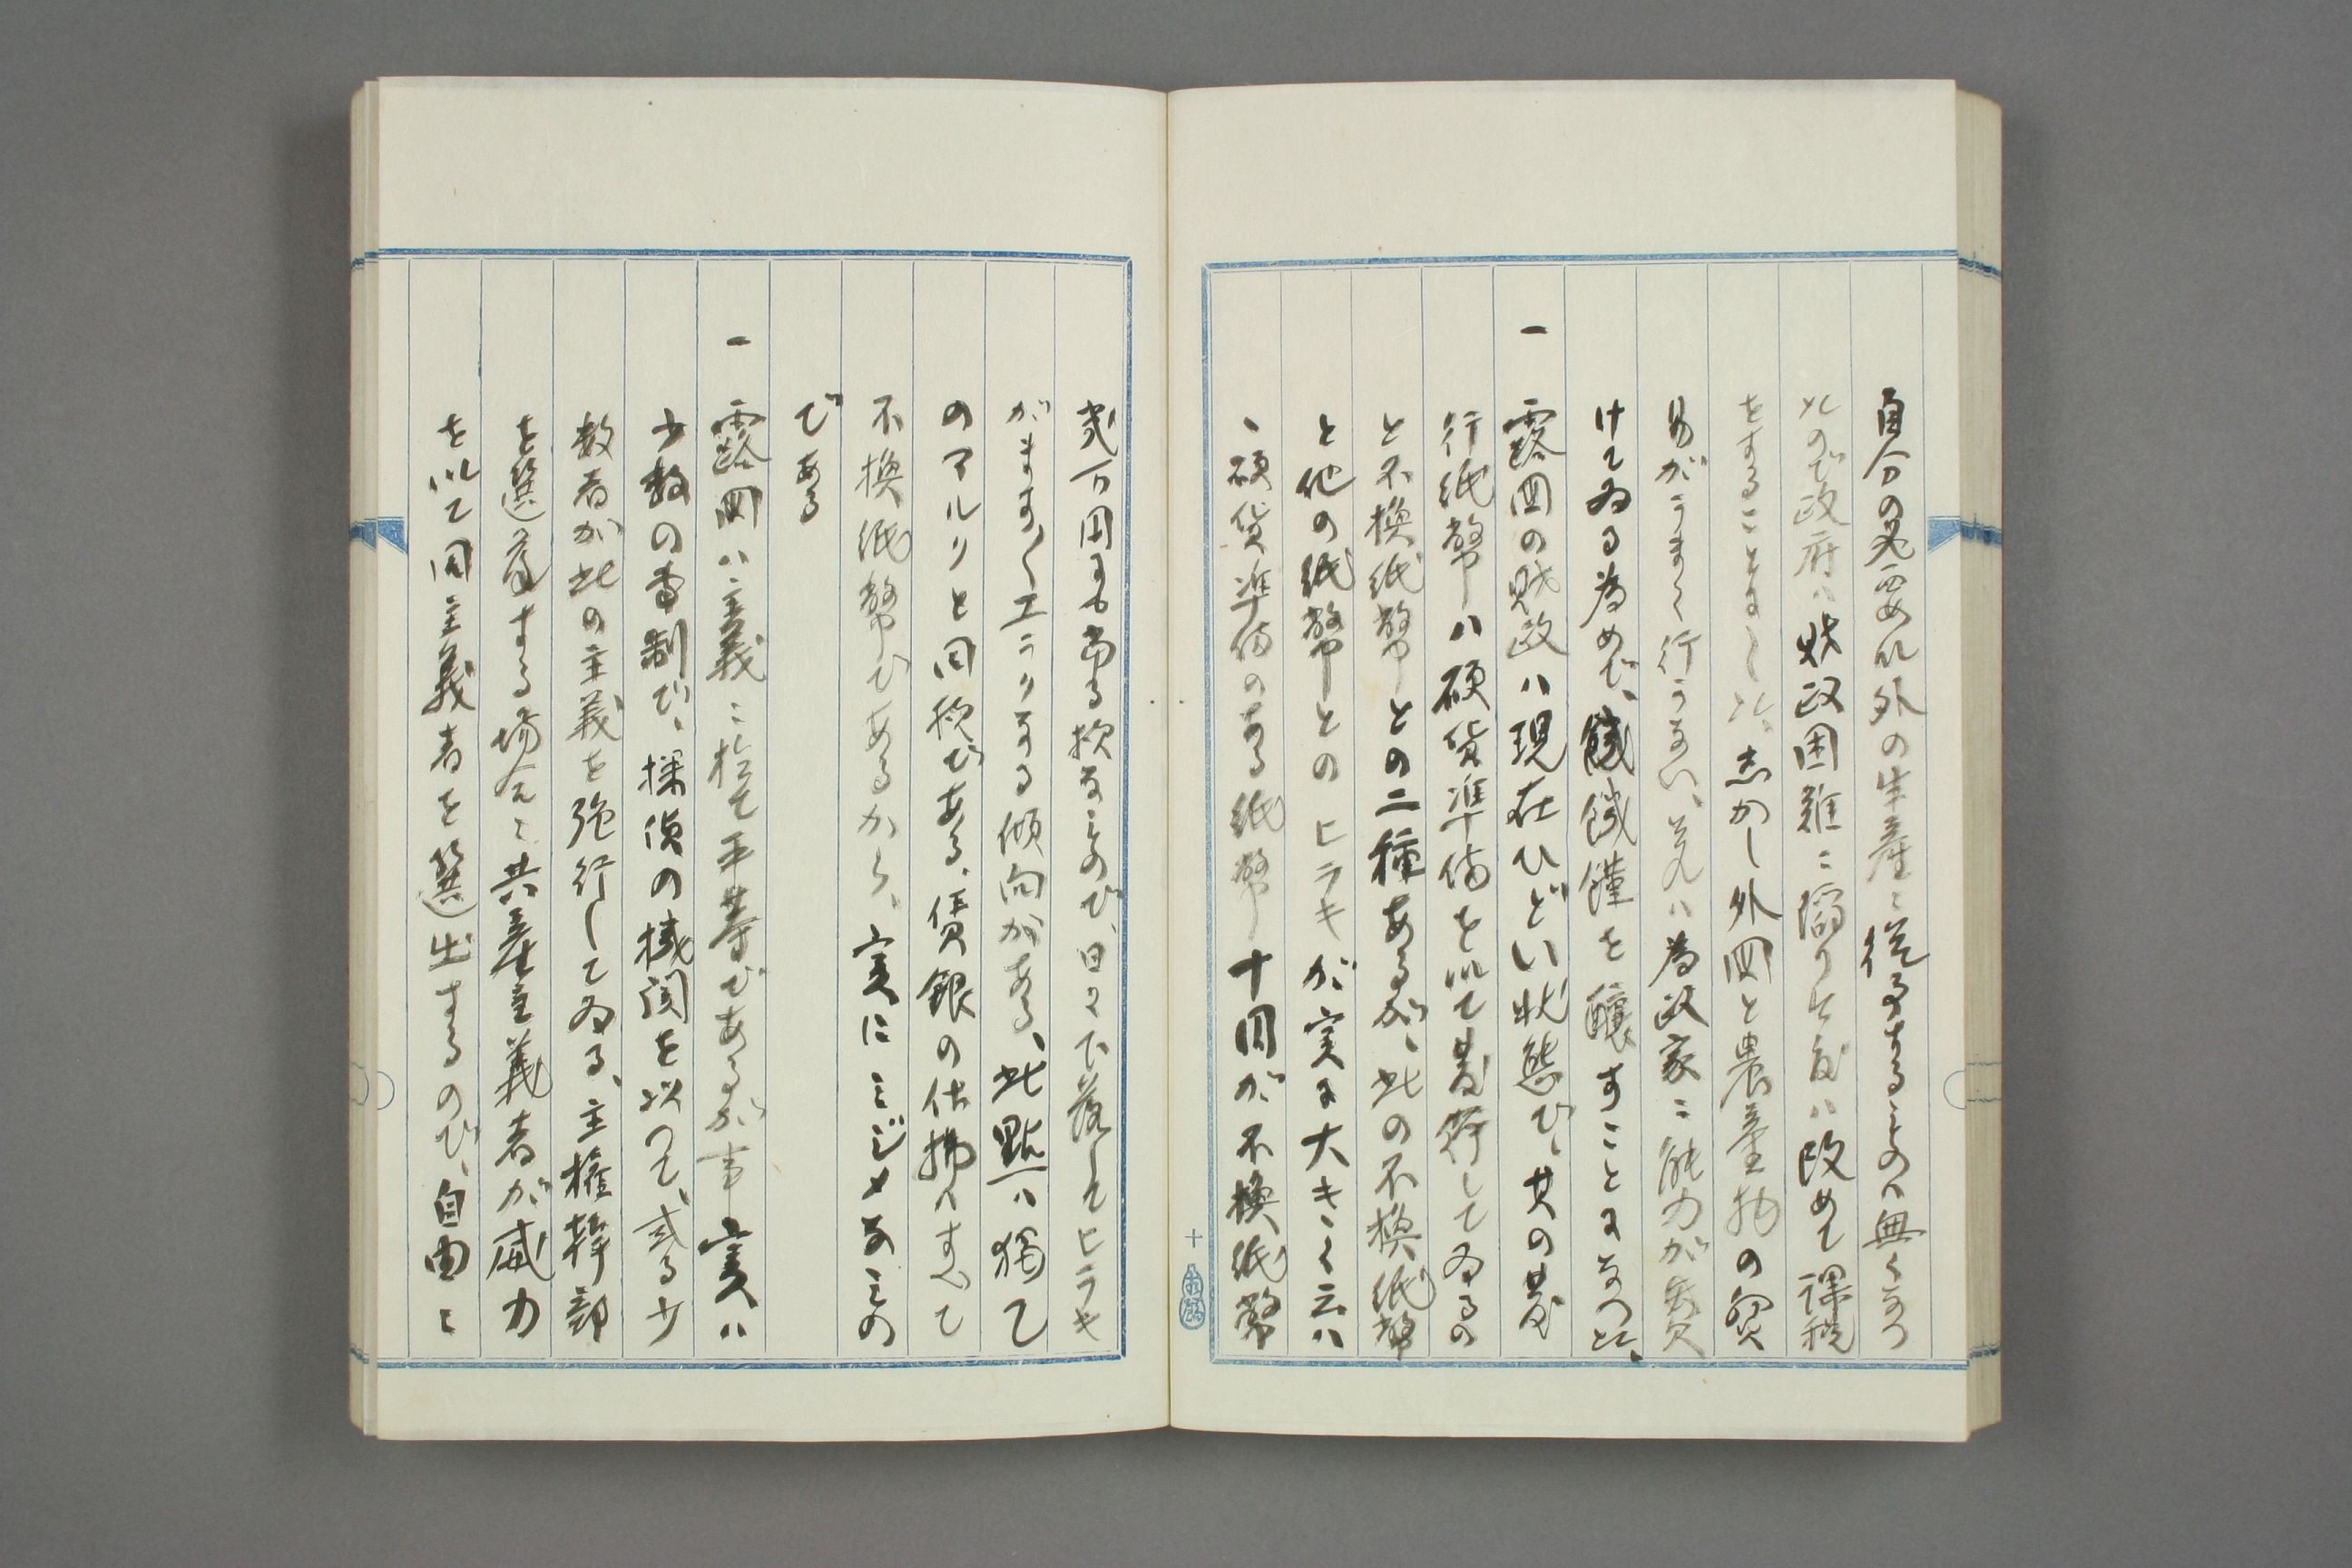 自分の必要以外の生産に従事するものハ無くなつ
たので政府ハ財政困難に陥り今度ハ改めて課税
をすることにした、しかし外国と農産物の貿
易がうまく行かない、是ハ為政家に能力が欠
けてゐる為めで、餓饑饉を醸すことになつた、
一 露国の財政ハ現在ひどい状態で、其の発
行紙幣ハ硬貨準備を以て発行してゐるの
と不換紙幣との二種あるが、此の不換紙幣
と他の紙幣とのヒラキが実に大きく云ハ
ヾ硬貨準備のある紙幣十円が不換紙幣
弐万円にも当る様なもので、日々下落してヒラキ
がますますエラクなる傾向がある、此點ハ獨乙
のマルクと同様である、賃銀の仕拂ハすべて
不換紙幣であるから、実にミジメなもの
である
一 露国ハ主義に於て平等であるが事実ハ
少数の専制で、探偵の機関を以つて、或る少
数者が此の主義を強行してゐる、主権幹部
を選挙する場合に共産主義者が威力
を以て同主義者を選出するので、自由に
十